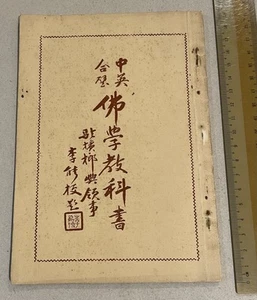 中英
合璧
佛學教科書
駐檳榔嶼領事
李能梗題